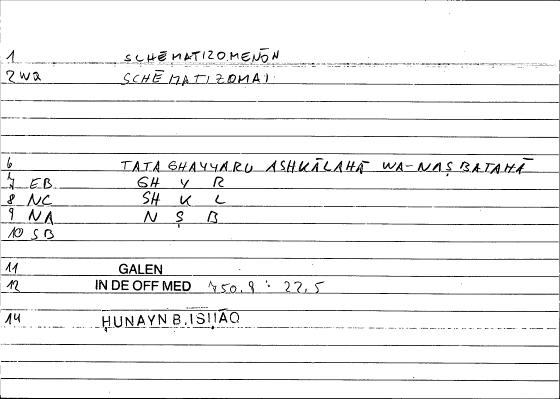 1 SCHĒMATIZOMENŌN
2 wa SCHĒMATIZOMAI
6 TATAGHAYYARU ASHKĀLAHĀ WA-NAṢBATAHĀ
7 EB GH Y R
8 NC SH K L
9 NA N Ṣ B
10 SB
11 GALEN
12 IN DE OFF MED 750.9 : 22,5
14 ḤUNAYN B. ISḤĀQ